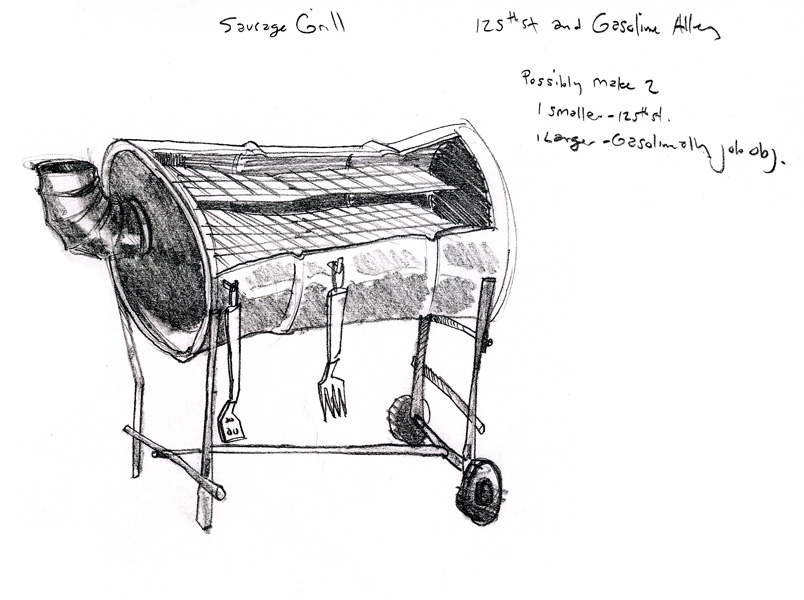 Sausage Grill
125th st and Gasoline Alley
Possibly make 2
1 smaller - 125th st.
1 Larger - Gasoline Ally job obj.